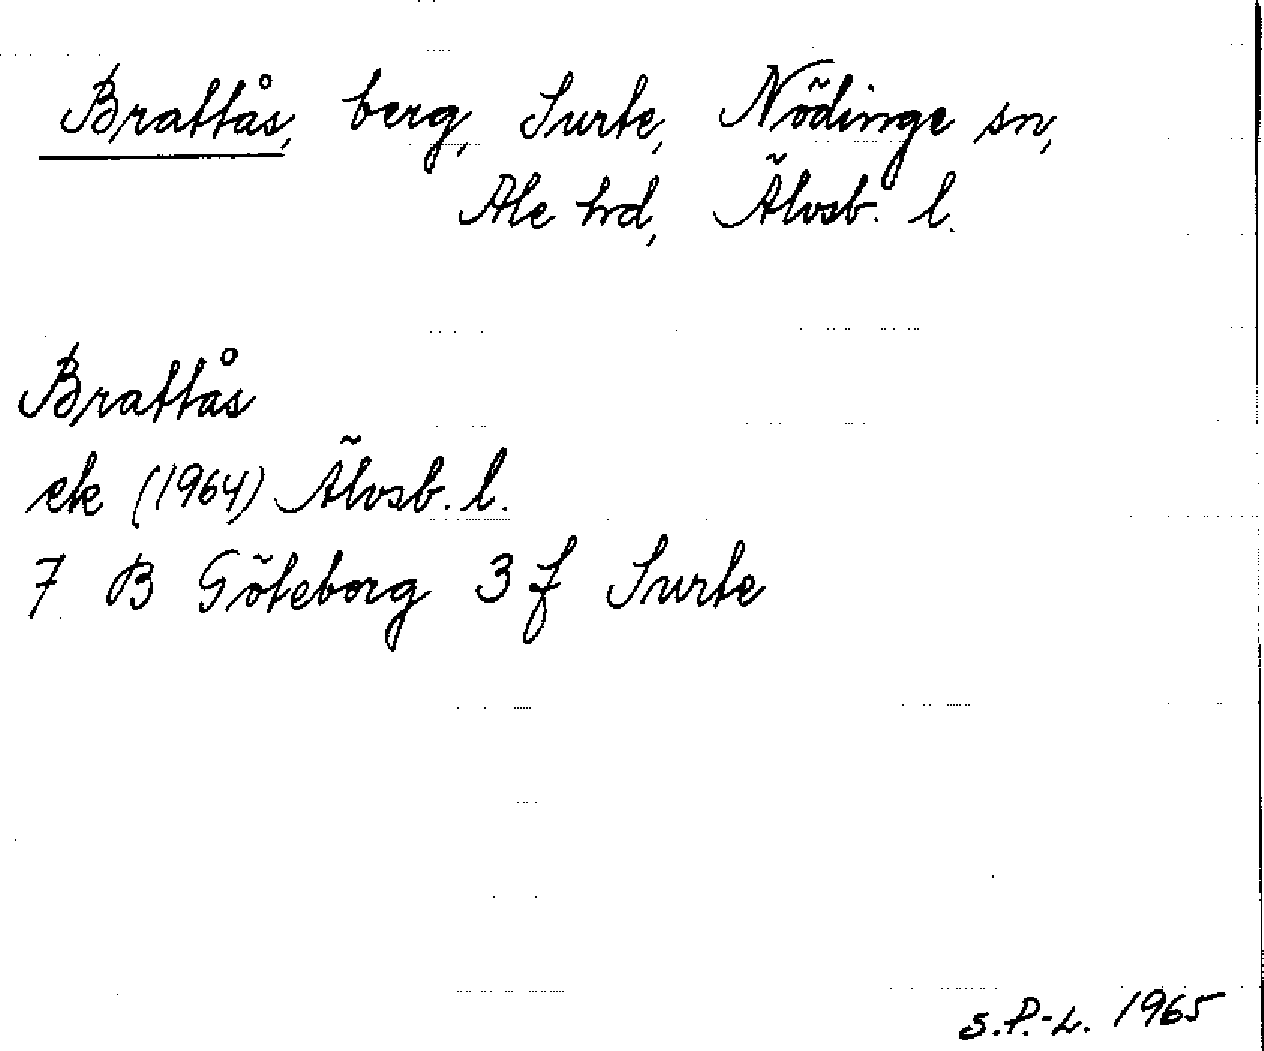 Brattås, berg, Surte, Nödinge sn,
Ale hrd, Älvsb. l.
Brattås
ek (1964) Älvsb. l.
7 B Göteborg 3 f Surte
S.P.-L. 1965